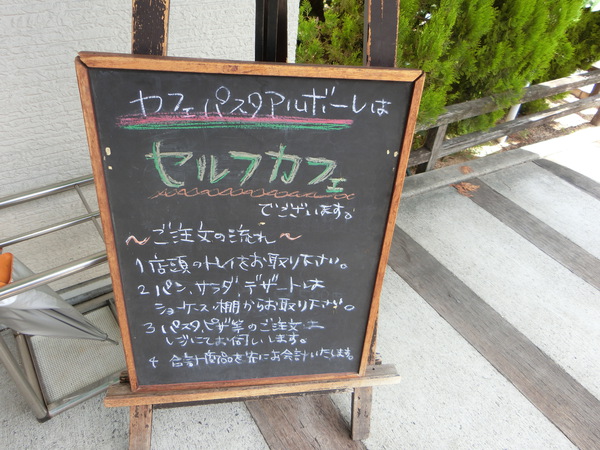 カフェパスタアルボーレは
セルフカフェ
でございます。
〜ご注文の流れ〜
1 店頭のトレイをお取り下さい。
2 パン、サラダ、デザートは
ショーケース・棚からお取り下さい。
3 パスタピザ等のご注文は
レジにてお伺いします。
4 合計商品を先にお会計いたします。